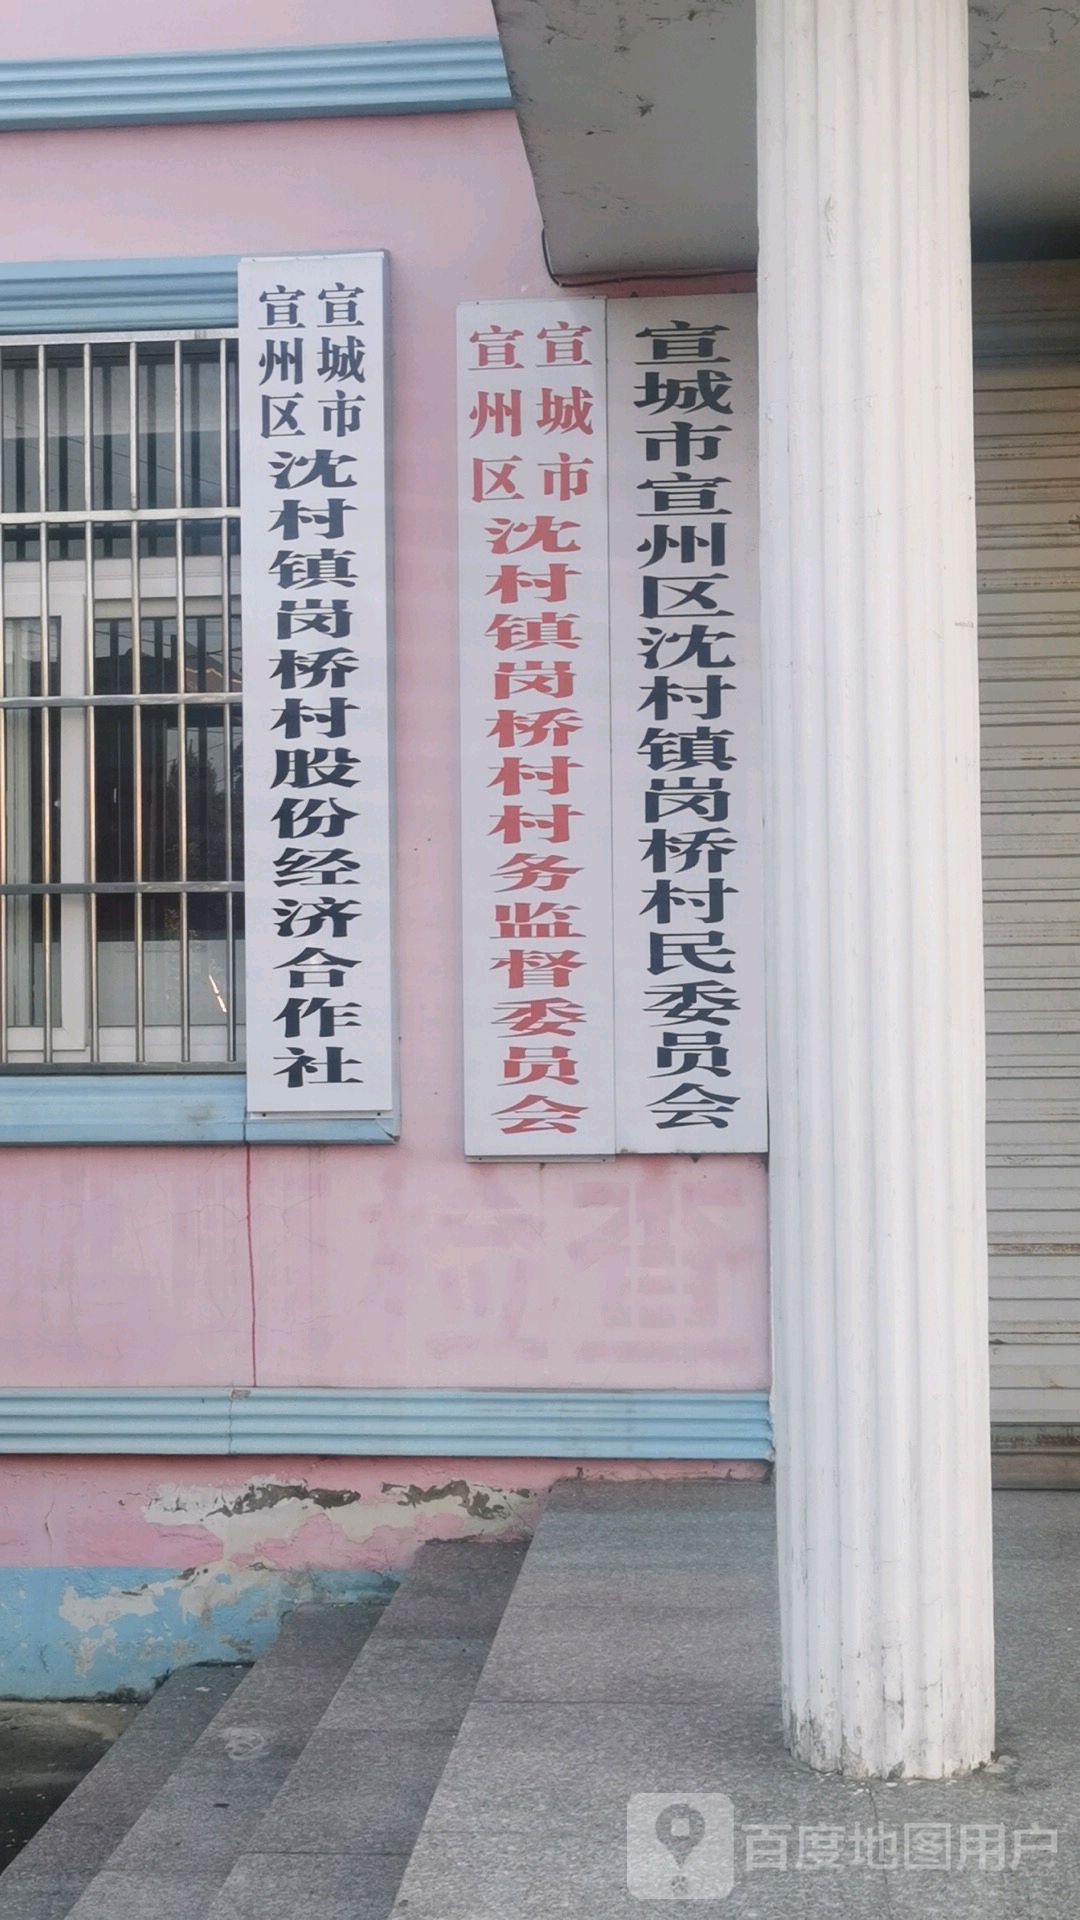 宣城市
宣州区
沈村镇岗桥村股份经济合作社
宣城市
宣州区
沈村镇岗桥村村务监督委员会
宣城市宣州区沈村镇岗桥村民委员会
百度地图用户